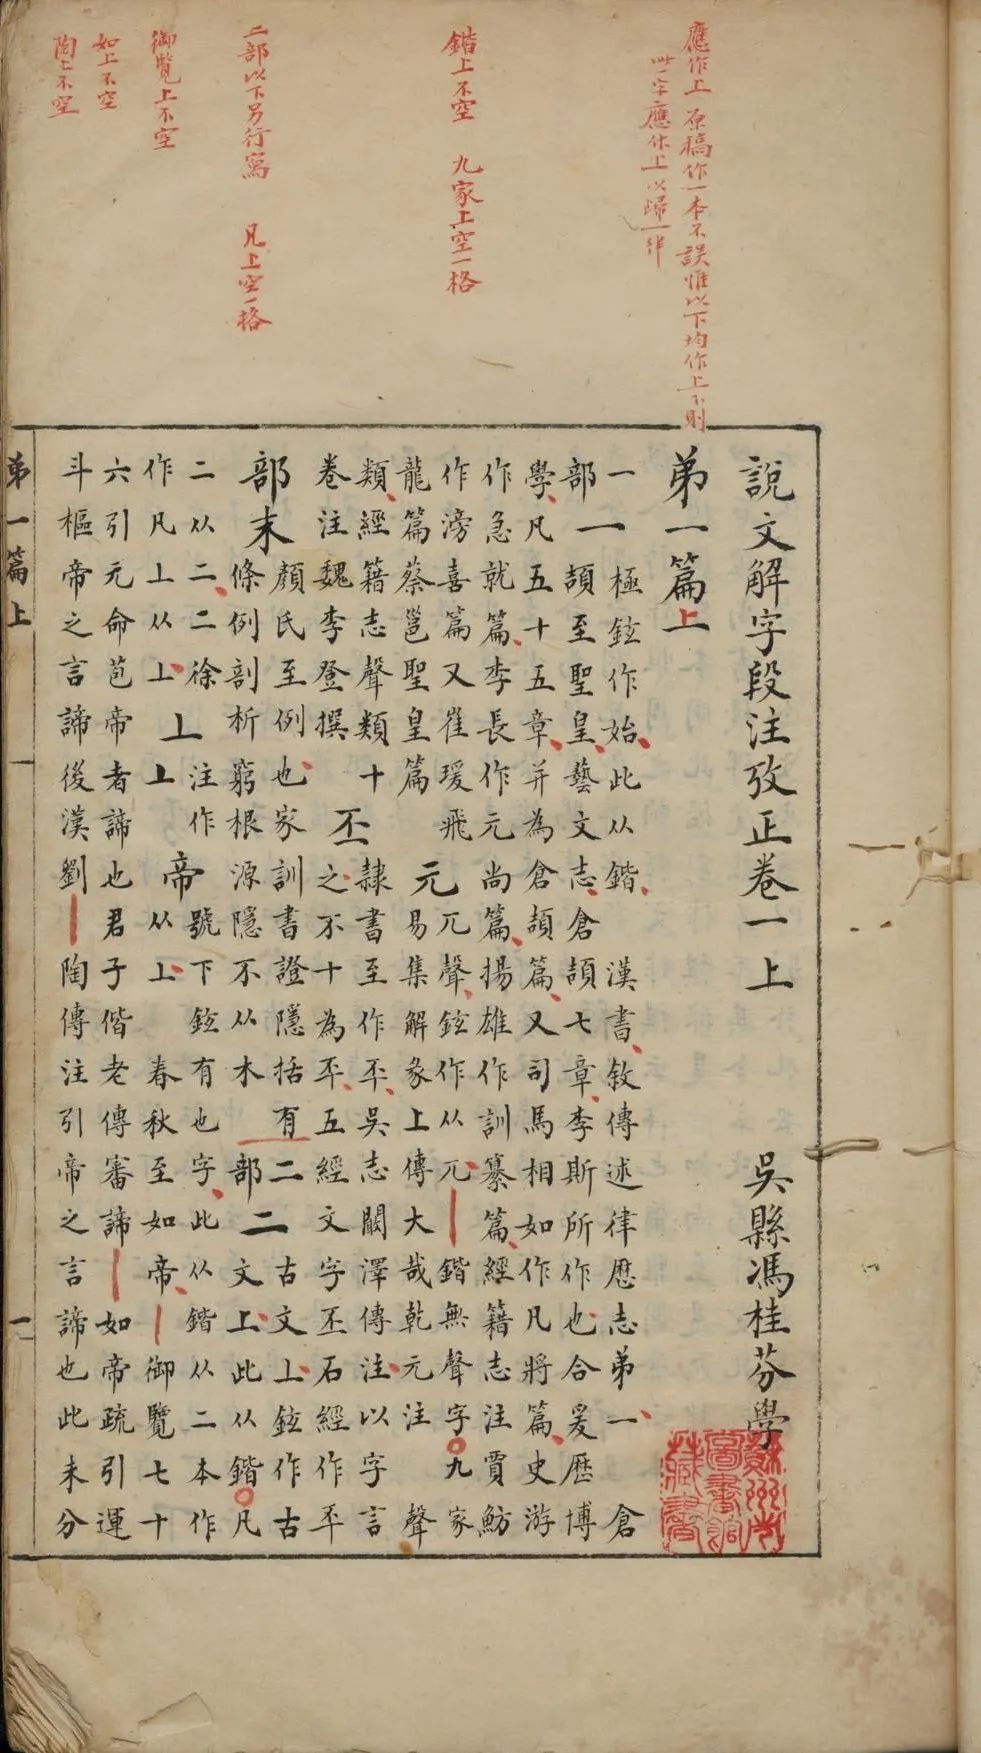 應作上 原稿作一本不誤惟以下均作上下則
此一字應作上以歸一律
鍇上不空 九家上空一格
二部以下另行寫 凡上空一格
御覽上不空
如上不空
陶上不空
說文解字段注攷正卷一上 吳縣馮桂芬學
弟一篇上
一極鉉作始此从鍇 漢書敘傳述律歷志弟一 倉
部一頡至聖皇藝文志倉頡七章李斯所作也合爰歷博
學凡五十五章并為倉頡篇又司馬相如作凡將篇史游
作急就篇李長作元尚篇揚雄作訓纂篇經籍志注賈魴
作滂喜篇又崔瑗飛 兀聲鉉作从兀 鍇無聲字○九家
龍篇蔡邕聖皇篇 元易集解彖上傳大哉乾元注 聲
類經籍志聲類十 隸書至作丕吳志闞澤傳注以字言
卷注魏李登撰 丕之不十為丕五經文字丕石經作平
部末 顏氏至例也家訓書證隱括有二 古文上鉉作古
條例剖析窮根源隱不从木 部二文上此从鍇○凡
二从二二徐 丄注作 號下鉉有也字此从鍇从二本作
作凡丄从丄 上 帝从丄 春秋至如帝 御覽七十
六引元命苞帝者諦也君子偕老傳審諦 如帝疏引運
斗樞帝之言諦後漢劉 陶傳注引帝之言諦也此未分
弟一篇上 一
蘇州市圖書館藏書